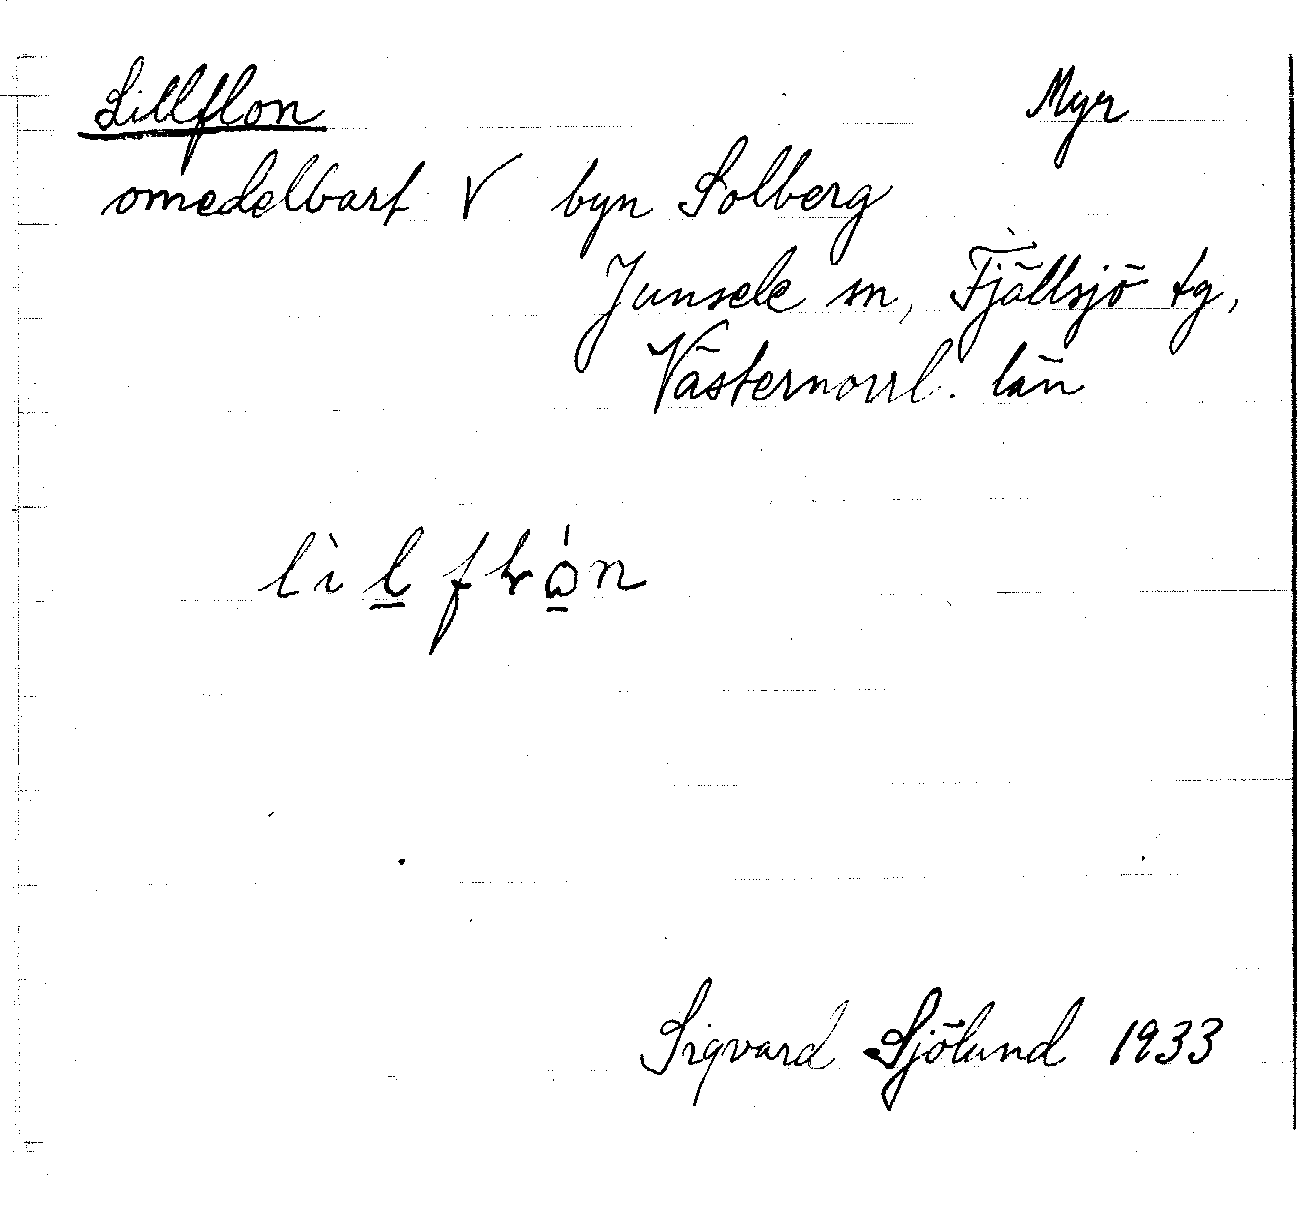 Lillflon Myr
omedelbart V byn Solberg
Junsele sn, Fjällsjö tg,
Västernorrl. län
Sigvard Sjölund 1933